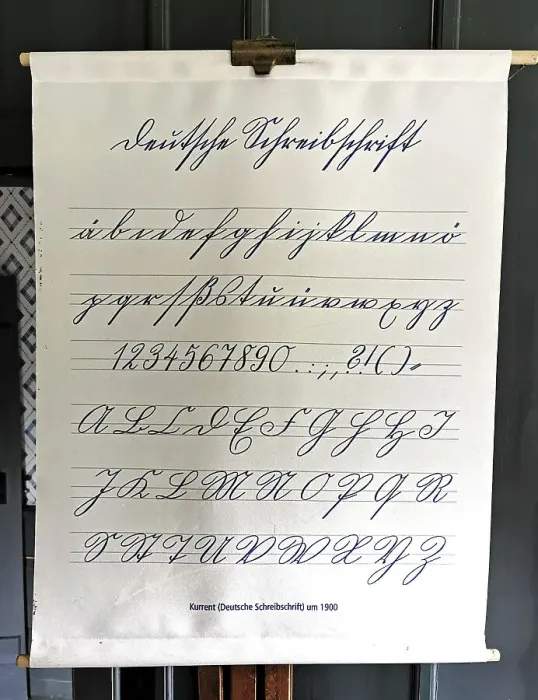 Deutsche Schreibschrift
ä b c d e f g h i j k l m n ö
p q r s ſ ß s t u ü v w x y z
1 2 3 4 5 6 7 8 9 0 . : ; , ? ! ( ) "
A B C D E F G H H I
J K L M N O P Q R
S St T U V W X Y Z
Kurrent (Deutsche Schreibschrift) um 1900